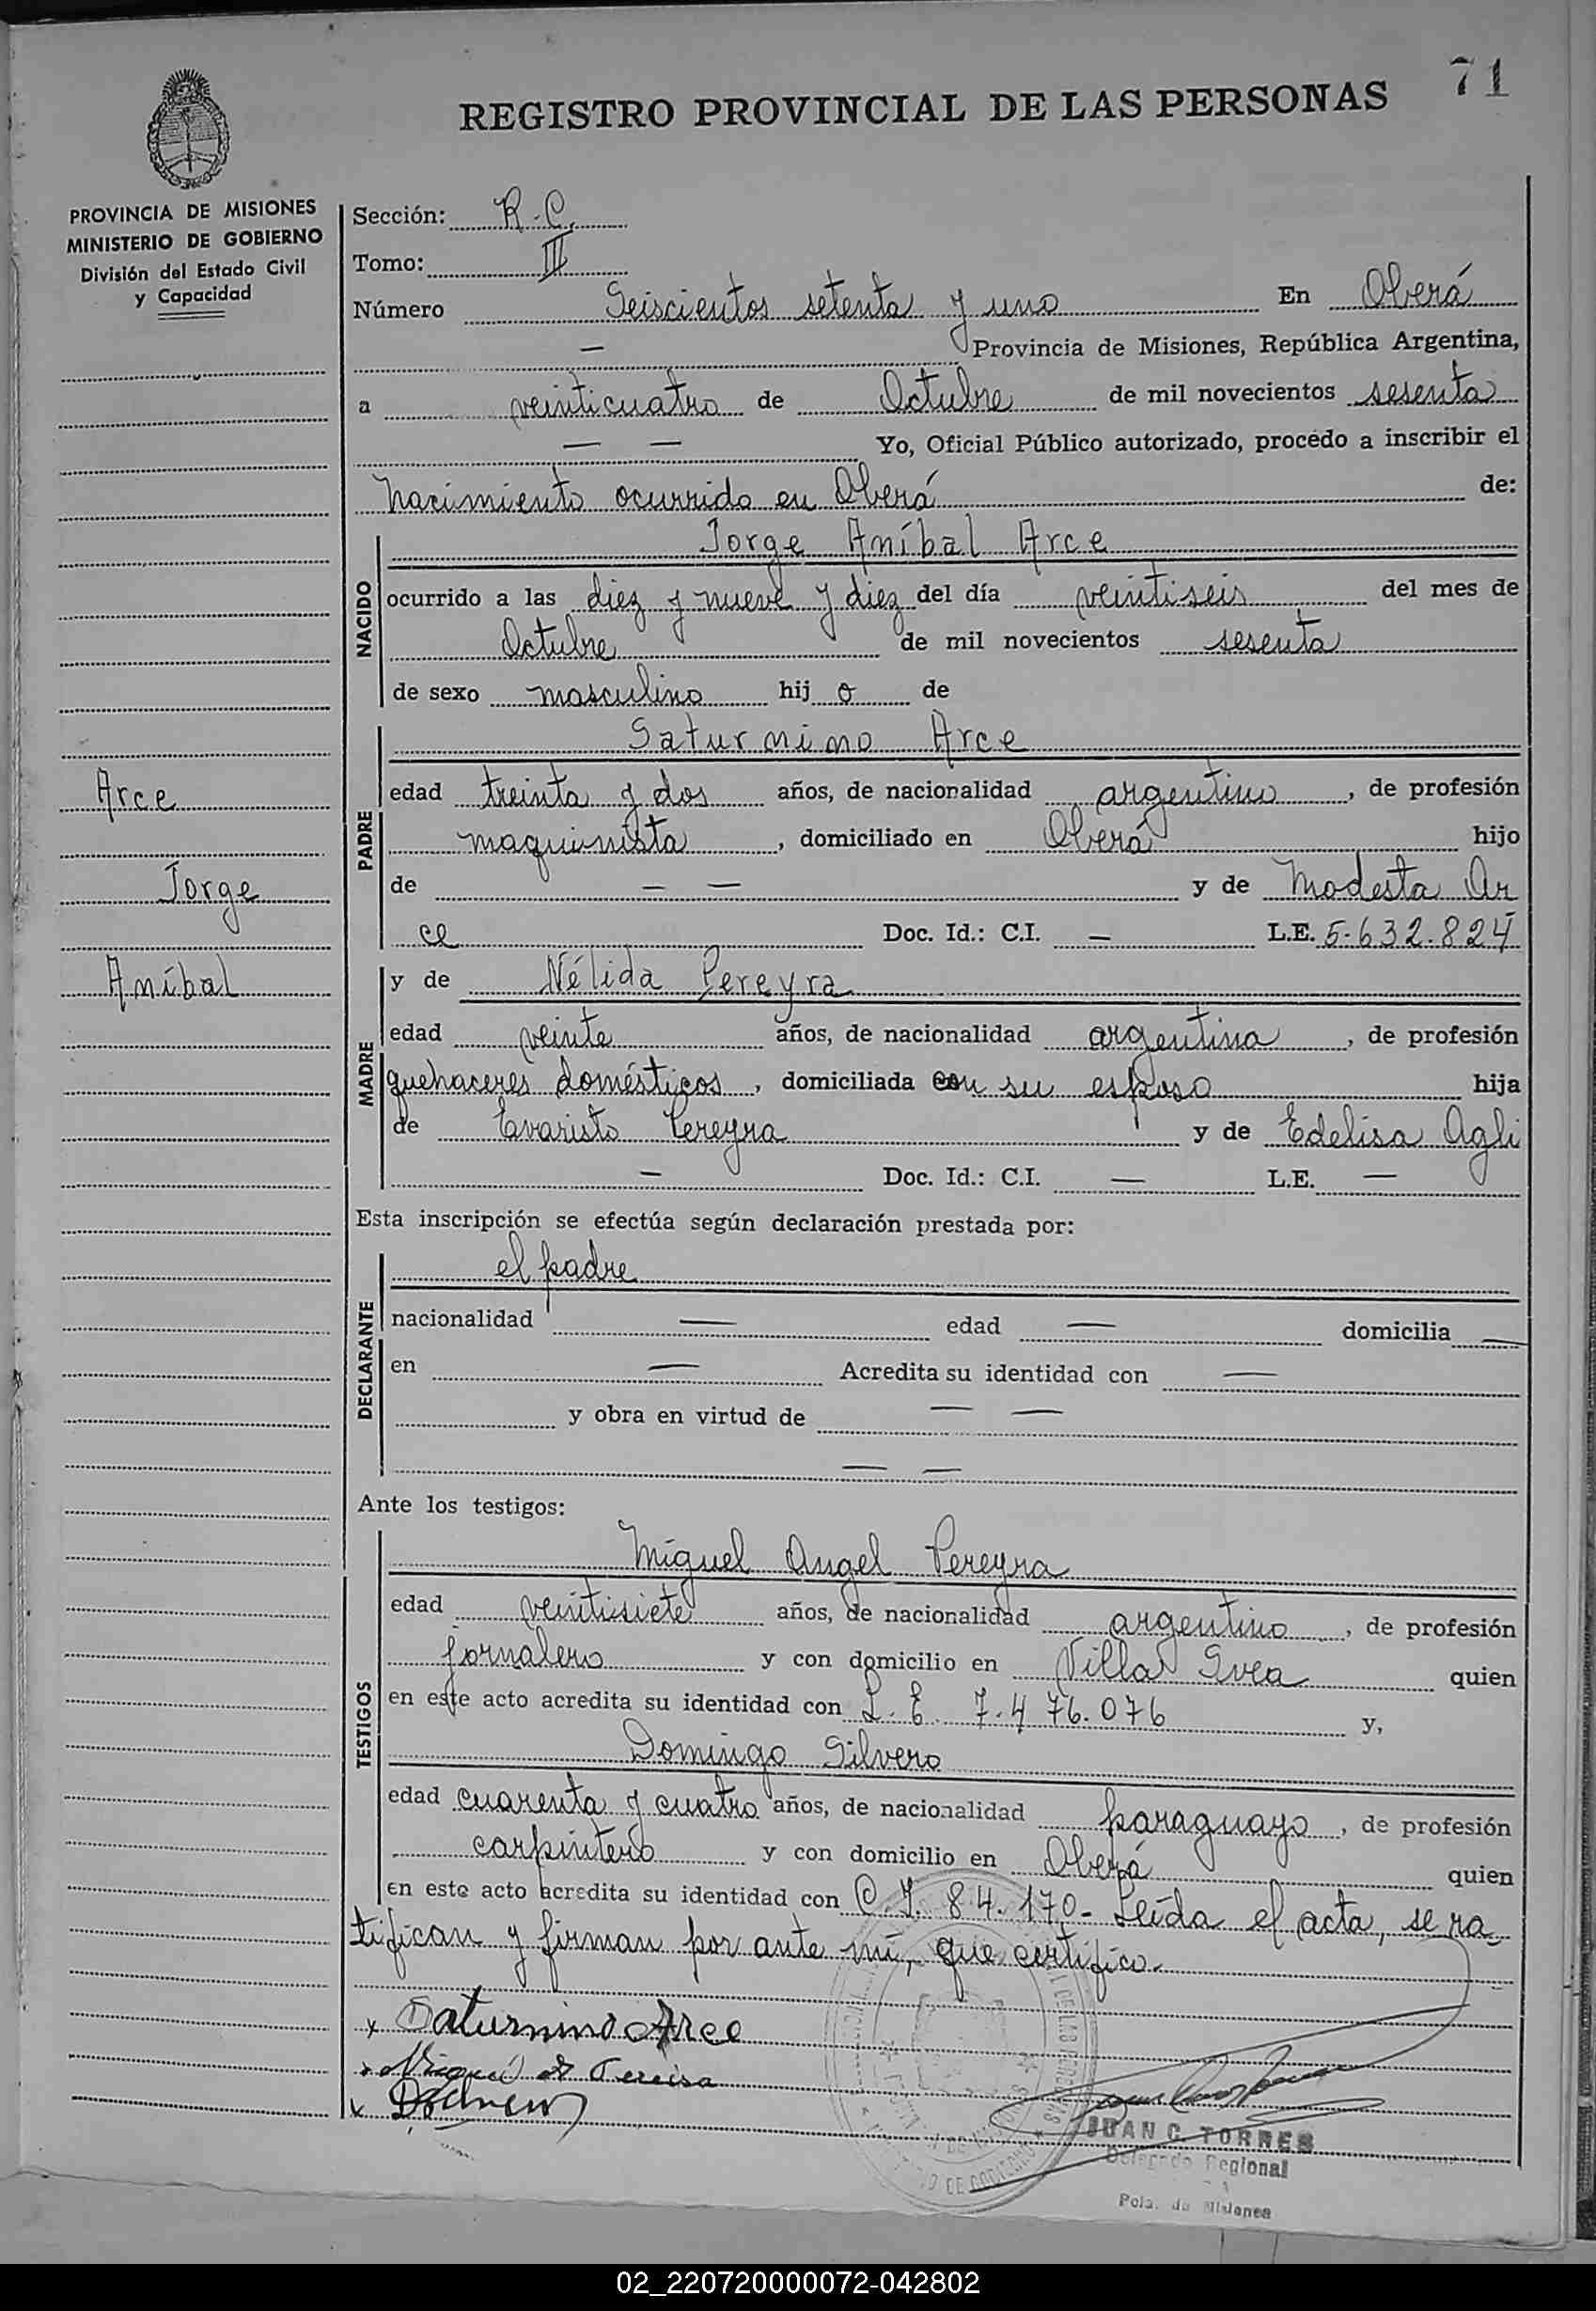 71
REGISTRO PROVINCIAL DE LAS PERSONAS
PROVINCIA DE MISIONES
MINISTERIO DE GOBIERNO
División del Estado Civil
y Capacidad
Sección: R.C.
Tomo: III
Número Seiscientos setenta y uno En Oberá
— Provincia de Misiones, República Argentina,
a veinticuatro de Octubre de mil novecientos sesenta
— — Yo, Oficial Público autorizado, procedo a inscribir el
Nacimiento ocurrido en Oberá de:
NACIDO
Jorge Aníbal Arce
ocurrido a las diez y nueve y diez del día veintiseis del mes de
Octubre de mil novecientos sesenta
de sexo masculino hij o de
PADRE
Saturnino Arce
Arce
Jorge
Aníbal
edad treinta y dos años, de nacionalidad argentino, de profesión
maquinista, domiciliado en Oberá hijo
de — — y de Modesta Ar
ce Doc. Id.: C.I. — L.E. 5.632.824
MADRE
y de Nélida Pereyra
edad veinte años, de nacionalidad argentina, de profesión
quehaceres domésticos, domiciliada con su esposo hija
de Evaristo Pereyra y de Edelisa Agli
— Doc. Id.: C.I. — L.E. —
Esta inscripción se efectúa según declaración prestada por:
DECLARANTE
el padre
nacionalidad — edad — domicilia —
en — Acredita su identidad con —
y obra en virtud de — —
— —
Ante los testigos:
TESTIGOS
Miguel Angel Pereyra
edad veintisiete años, de nacionalidad argentino, de profesión
jornalero y con domicilio en Villa Svea quien
en este acto acredita su identidad con L.E. 7.476.076 y,
Domingo Silvero
edad cuarenta y cuatro años, de nacionalidad paraguayo, de profesión
carpintero y con domicilio en Oberá quien
en este acto acredita su identidad con C.I. 84.170- Leída el acta, se ra-
tifican y firman por ante mí, que certifico.
x Saturnino Arce
x
x
JUAN C. TORRES
Delegado Regional
Pcia. de Misiones
02_220720000072-042802